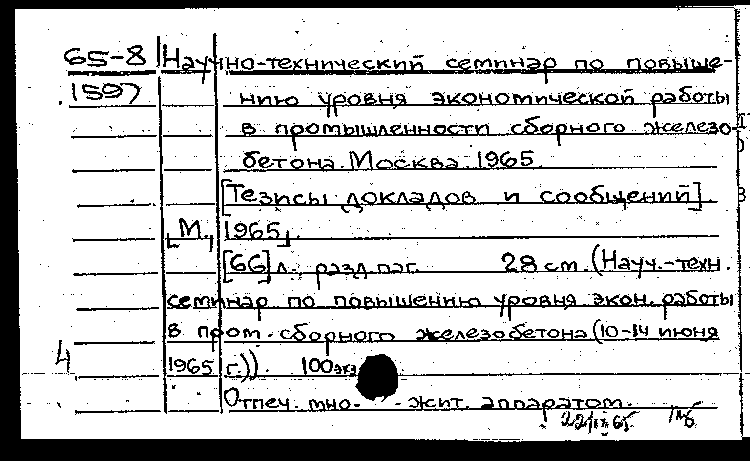 65-8 Научно-технический семинар по повыше-
1597 нию уровня экономической работы
в промышленности сборного железо-
бетона. Москва. 1965.
[Тезисы докладов и сообщений].
[М., 1965].
[66] л., разд. паг. 28 см. (Науч.-техн.
семинар по повышению уровня экон. работы
в пром. сборного железобетона (10-14 июня
4 1965 г.)). 100 экз
Отпеч. мно- -жит. аппаратом.